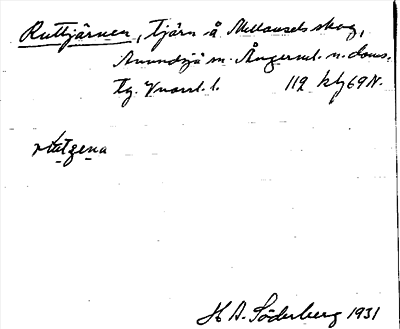 Ruttjärnen, tjärn å Mellansels skog,
Anundsjö sn. Ångerml. n. doms.
tg. Vnorrl. l. 112 kbj 69 N.
rùtgena
H A. Söderberg 1931